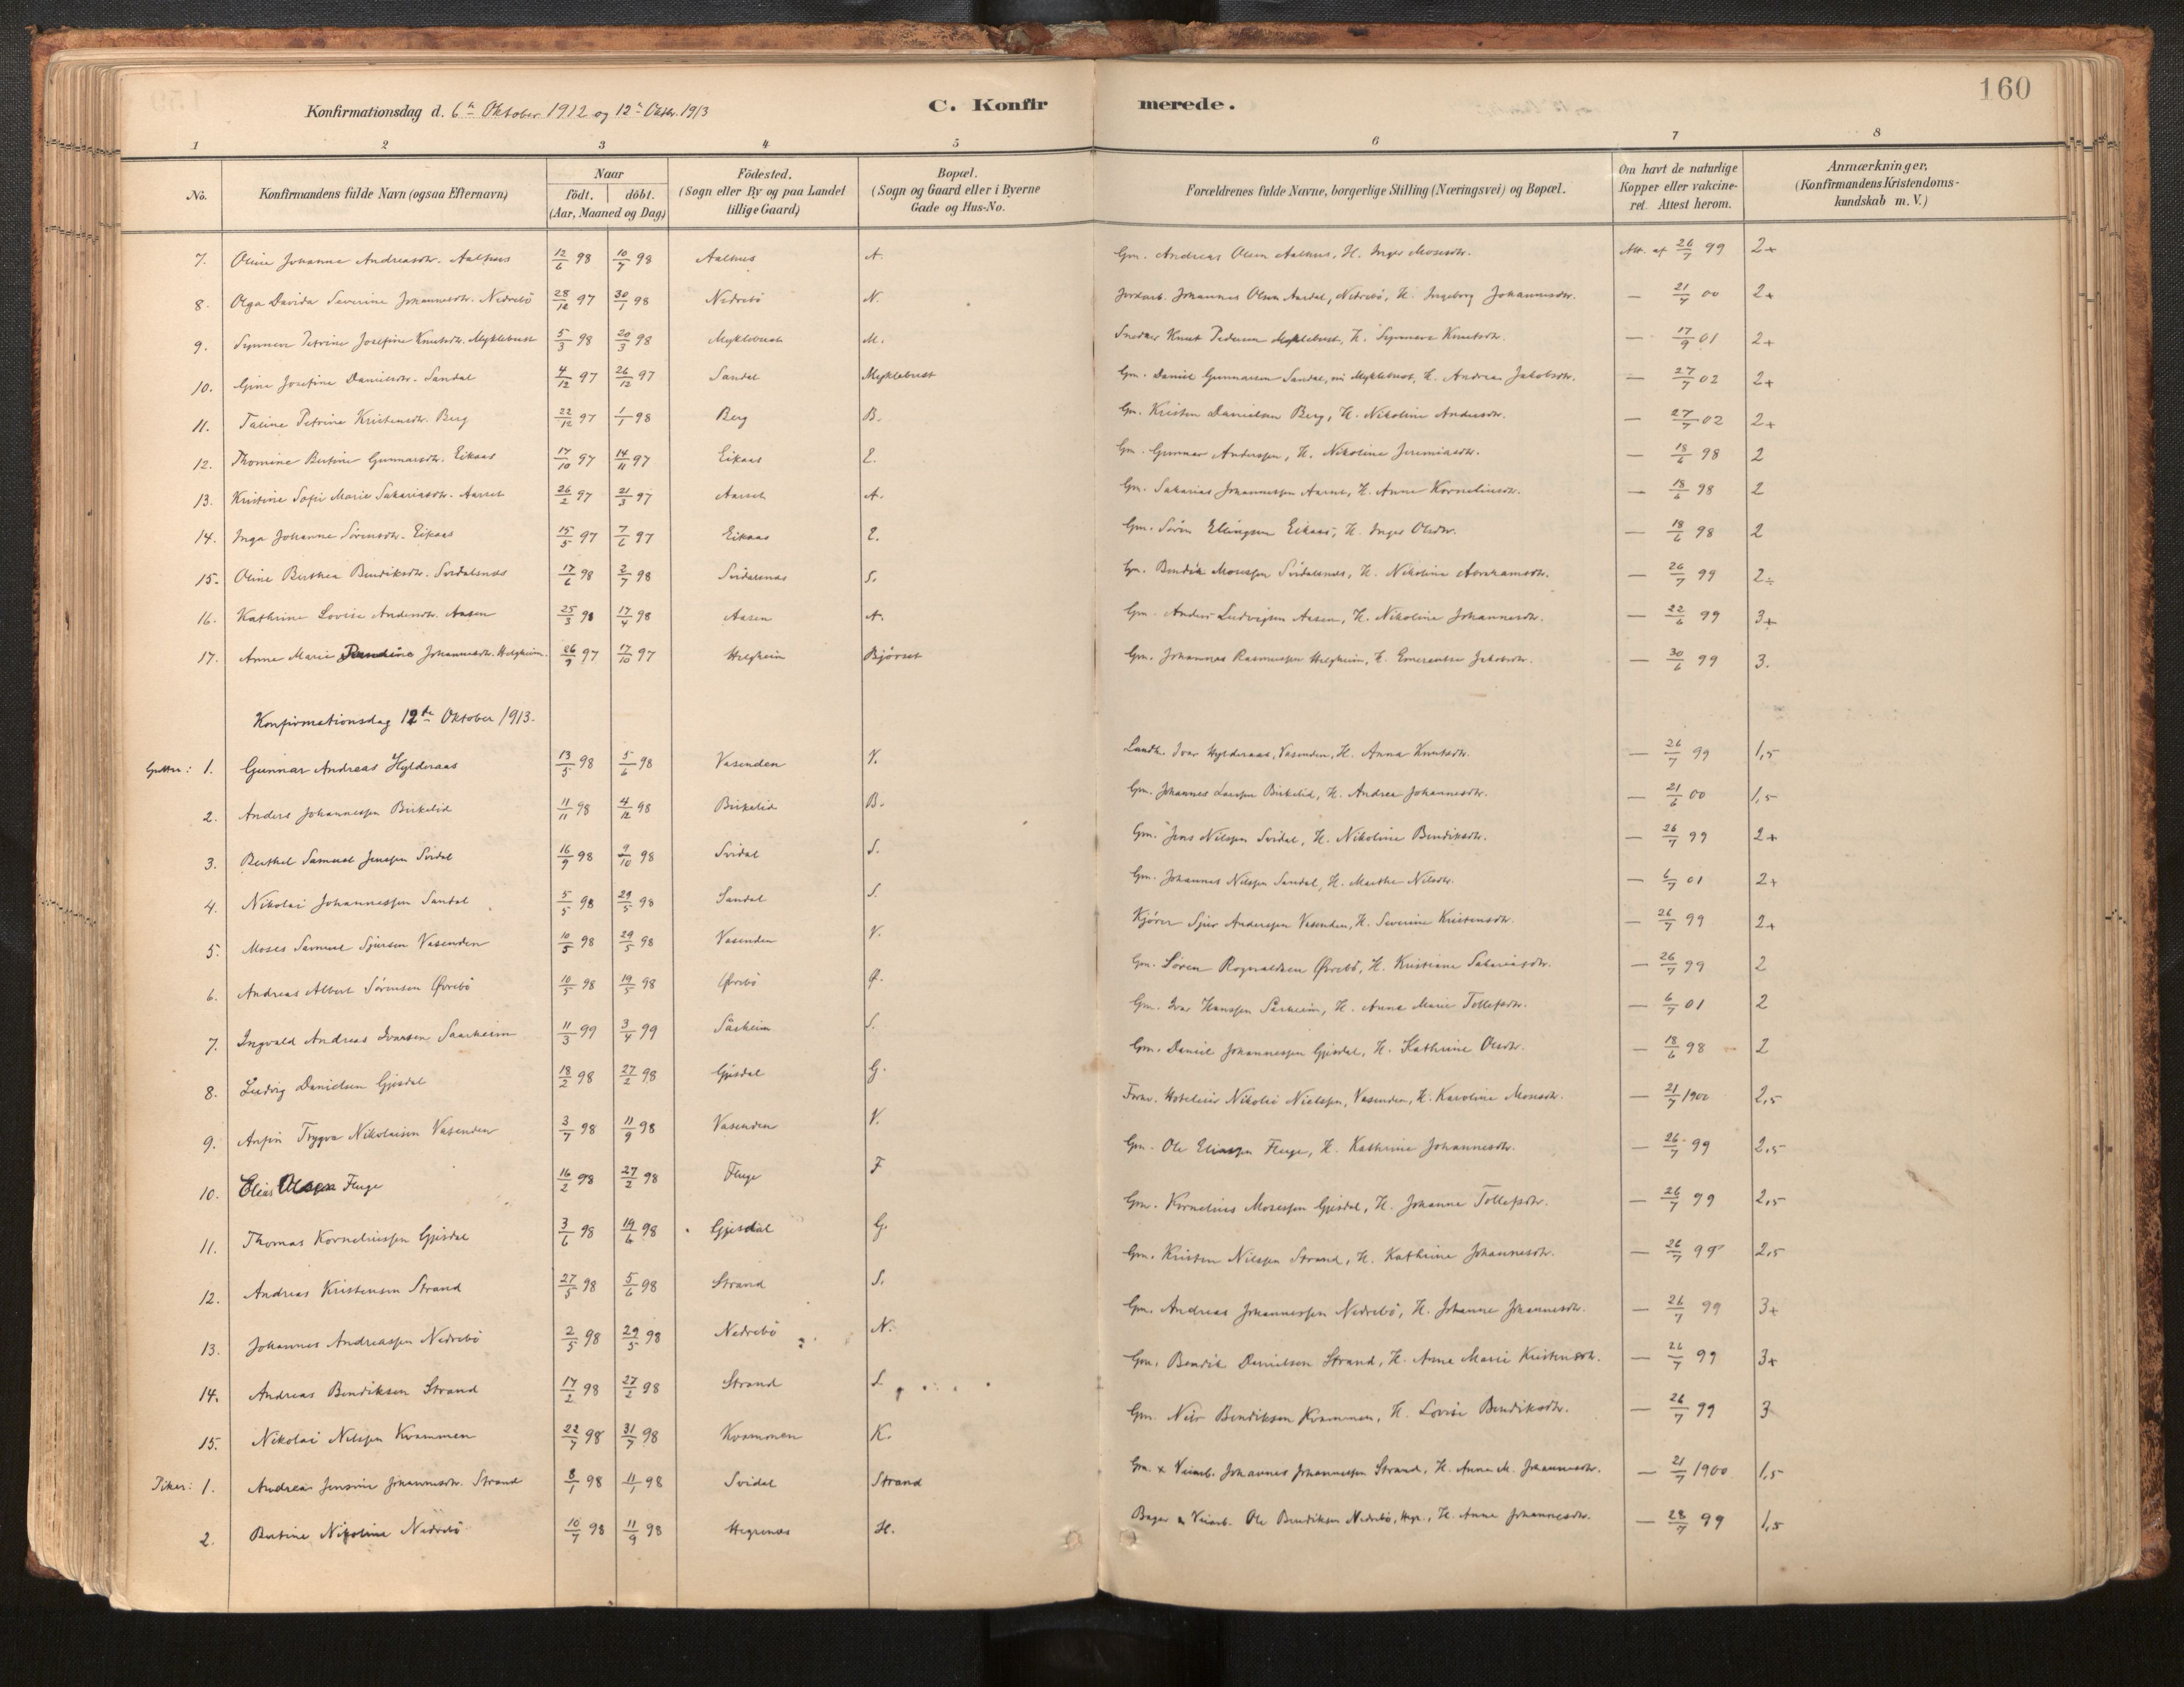 160
Konfirmationsdag d. 6te Oktober 1912 og 12te Oktbr. 1913 C. Konfirmerede.
1 2 3 4 5 6 7 8
No. Konfirmandens fulde Navn (ogsaa Efternavn) Naar födt. döbt. (Aar, Maaned og Dag) Födested. (Sogn eller By og paa Landet tillige Gaard) Bopæl. (Sogn og Gaard eller i Byerne Gade og Hus-No. Forældrenes fulde Navne, borgerlige Stilling (Næringsvei) og Bopæl. Om havt de naturlige Kopper eller vakcineret. Attest herom. Anmærkninger, (Konfirmandens Kristendomskundskab m. V.)
7. Oline Johanne Andreasdtr. Aalhus 12/6 98 10/7 98 Aalhus A. Gm. Andreas Olsen Aalhus, H. Inger Mosesdtr. Att. af 26/7 99 2+
8. Olga Davida Severine Johannesdtr. Nedrebö 28/12 97 30/1 98 Nedrebö N. Jordarb. Johannes Olsen Aardal, Nedrebö, H. Ingeborg Johannesdtr. — 21/7 00 2+
9. Synneve Petrine Josefine Knutsdtr. Myklebust 5/3 98 20/3 98 Myklebust M. Snedker Knut Pedersen Myklebust, H. Synneve Knutsdtr. — 17/9 01 2+
10. Gine Josefine Danielsdtr. Sandal 4/12 97 26/12 97 Sandal Myklebust Gm. Daniel Gunnarsen Sandal, nu Myklebust, H. Andrea Jakobsdtr. — 27/7 02 2+
11. Taline Petrine Kristensdtr. Berg 22/12 97 1/1 98 Berg B. Gm. Kristen Danielsen Berg, H. Nikoline Andersdtr. — 27/7 02 2+
12. Thomine Bertine Gunnarsdtr. Eikaas 17/10 97 14/11 97 Eikaas E. Gm. Gunnar Anderssen, H. Nikoline Jeremiasdtr. — 18/6 98 2
13. Kristine Sofie Marie Sakariasdtr. Aarset 26/2 97 21/3 97 Aarset A. Gm. Sakarias Johannessen Aarset, H. Anne Korneliusdtr. — 18/6 98 2
14. Inga Johanne Sörensdtr. Eikaas 15/5 97 7/6 97 Eikaas E. Gm. Sören Ellingsen Eikaas, H. Inger Olsdtr. — 18/6 98 2
15. Oline Berthea Bendiksdtr. Svidalsnes 17/6 98 2/7 98 Svidalsnes S. Gm. Bendik Mosessen Svidalsnes, H. Nikoline Abrahamsdtr. — 26/7 99 2÷
16. Kathrine Lovise Andersdtr. Aasen 25/3 98 17/4 98 Aasen A. Gm. Anders Ludvigsen Aasen, H. Nikoline Johannesdtr. — 22/6 99 3+
17. Anne Marie Johannesdtr. Helgheim 26/9 97 17/10 97 Helgheim Bjørset Gm. Johannes Rasmussen Helgheim, H. Emerentse Jakobsdtr. — 30/6 99 3.
Konfirmationsdag 12te Oktober 1913.
Gutter: 1. Gunnar Andreas Hylderaas 13/5 98 5/6 98 Vasenden V. Landh. Ivar Hylderaas, Vasenden, H. Anna Knutsdtr. — 26/7 99 1,5
2. Anders Johannessen Birkelid 11/11 98 4/12 98 Birkelid B. Gm. Johannes Larssen Birkelid, H. Andrea Johannesdtr. — 21/6 00 1,5
3. Berthel Samuel Jenssen Svidal 16/9 98 9/10 98 Svidal S. Gm. Jens Nilssen Svidal, H. Nikoline Bendiksdtr. — 26/7 99 2+
4. Nikolai Johannessen Sandal 5/5 98 29/5 98 Sandal S. Gm. Johannes Nilssen Sandal, H. Marthe Nilsdtr. — 6/7 01 2+
5. Moses Samuel Sjursen Vasenden 10/5 98 29/5 98 Vasenden V. Kjörer Sjur Anderssen Vasenden, H. Severine Kristensdtr. — 26/7 99 2+
6. Andreas Albert Sörensen Øvrebö 10/5 98 19/5 98 Øvrebö Ø. Gm. Sören Rognaldsen Øvrebö, H. Kristiane Sakariasdtr. — 26/7 99 2
7. Ingvald Andreas Ivarsen Saarheim 11/3 99 3/4 99 Sårheim S. Gm. Ivar Hanssen Sårheim, H. Anne Marie Tollefsdtr. — 6/7 01 2
8. Ludvig Danielsen Gjesdal 18/2 98 27/2 98 Gjesdal G. Gm. Daniel Johannessen Gjesdal, H. Kathrine Olsdtr. — 18/6 98 2
9. Arfin Trygve Nikolaisen Vasenden 3/7 98 11/9 98 Vasenden V. Forv. Hotelleier Nikolai Nielssen, Vasenden, H. Karoline Mosesdtr. — 21/7 1900 2,5
10. Elias Olsen Fluge 16/2 98 27/2 98 Fluge F Gm. Ole Eliassen Fluge, H. Kathrine Johannesdtr. — 26/7 99 2,5
11. Thomas Korneliussen Gjesdal 3/6 98 19/6 98 Gjesdal G. Gm. Kornelius Mosessen Gjesdal, H. Johanne Tollefsdtr. — 26/7 99 2,5
12. Andreas Kristensen Strand 27/5 98 5/6 98 Strand S. Gm. Kristen Nilssen Strand, H. Kathrine Johannesdtr. — 26/7 99 2,5
13. Johannes Andreassen Nedrebö 2/5 98 29/5 98 Nedrebö N. Gm. Andreas Johannessen Nedrebö, H. Johanne Johannesdtr. — 26/7 99 3+
14. Andreas Bendiksen Strand 17/2 98 27/2 98 Strand S Gm. Bendik Danielsen Strand, H. Anne Marie Kristensdtr. — 26/7 99 3+
15. Nikolai Nilssen Kvammen 22/7 98 31/7 98 Kvammen K. Gm. Nils Bendiksen Kvammen, H. Lovise Bendiksdtr. — 26/7 99 3
Piker: 1. Andrea Jensine Johannesdtr. Strand 8/1 98 11/1 98 Svidal Strand Gm. & Veiarb. Johannes Johannessen Strand, H. Anne M. Johannesdtr. — 21/7 1900 1,5
2. Bertine Nikoline Nedrebö 10/7 98 11/9 98 Hegrenes H. Bager & Veiarb. Ole Bendiksen Nedrebö, Hegr., H. Anne Johannesdtr. — 28/7 99 1,5